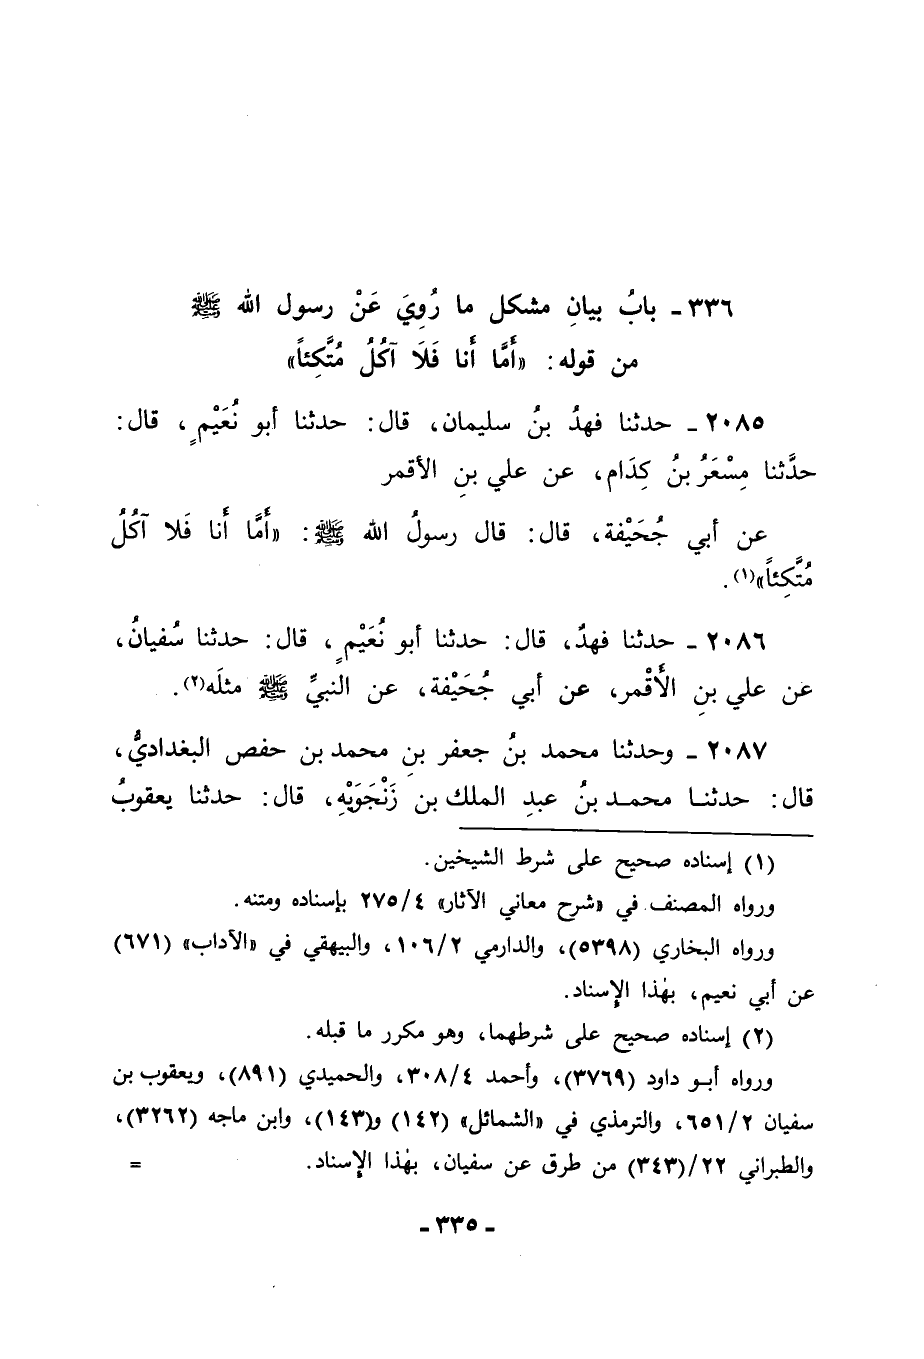 ٣٣٦ـ بابُ بيانِ مشكل ما رُوِيَ عَنْ رسول الله ﷺ
من قوله: «أَمَّا أَنا فَلَا آكُلُ مُتَّكِئاً»
٢٠٨٥ ـ حدثنا فهدُ بنُ سليمان، قال: حدثنا أبو نُعَيْمٍ، قال:
حدَّثنا مِسْعَرُ بنُ كِدَام، عن علي بنِ الأقمر
عن أبي جُحَيْفة، قال: قال رسولُ الله ﷺ: «أَمَّا أَنا فَلا آكُلُ
مُتَّكِئاً»(١).
٢٠٨٦ ـ حدثنا فهدٌ، قال: حدثنا أبو نُعَيْمٍ، قال: حدثنا سُفيانُ،
عن علي بنِ الأَقْمر، عن أبي جُحَيْفة، عن النبيِّ ﷺ مثلَه(٢).
٢٠٨٧ ـ وحدثنا محمد بنُ جعفر بنِ محمد بن حفص البغداديُّ،
قال: حدثنا محمد بنُ عبدِ الملك بن زَنْجَوَيْهِ، قال: حدثنا يعقوبُ
(١) إسناده صحيح على شرط الشيخين.
ورواه المصنف في «شرح معاني الآثار» ٢٧٥/٤ بإسناده ومتنه.
ورواه البخاري (٥٣٩٨)، والدارمي ١٠٦/٢، والبيهقي في «الآداب» (٦٧١)
عن أبي نعيم، بهٰذا الإِسناد.
(٢) إسناده صحيح على شرطهما، وهو مكرر ما قبله.
ورواه أبو داود (٣٧٦٩)، وأحمد ٣٠٨/٤، والحميدي (٨٩١)، ويعقوب بن
سفيان ٦٥١/٢، والترمذي في «الشمائل» (١٤٢) و(١٤٣)، وابن ماجه (٣٢٦٢)،
والطبراني ٢٢/(٣٤٣) من طرق عن سفيان، بهٰذا الإِسناد. =
ـ ٣٣٥ ـ